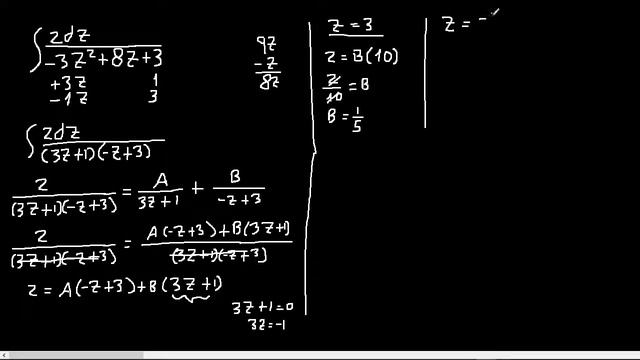 ∫ 2dz / (-3z² + 8z + 3)
+3z 1
-1z 3
9z
-z
8z
∫ 2dz / ((3z+1)(-z+3))
2 / ((3z+1)(-z+3)) = A / (3z+1) + B / (-z+3)
2 / ((3z+1)(-z+3)) = (A(-z+3)+B(3z+1)) / ((3z+1)(-z+3))
2 = A(-z+3)+B(3z+1)
3z+1=0
3z=-1
z = 3
2 = B(10)
2/10 = B
B = 1/5
z = -